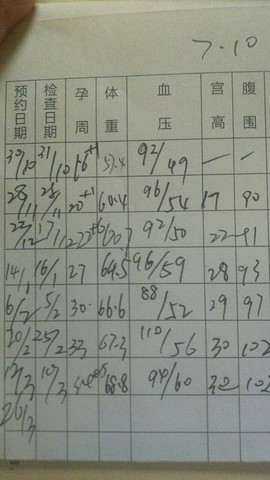 7.10
预约日期 检查日期 孕周 体重 血压 宫高 腹围
30/10 31/10 16+1 57.4 92/49 — —
28/11 28/11 20+1 60.4 96/54 17 90
22/12 17/12 22+6 92/50 22 91
14/1 16/1 27 64.5 96/59 28 93
6/2 5/2 30 66.6 88/52 29 97
20/2 25/2 33 67.3 110/56 30 102
10/3 68.8 94/60 32
20/3